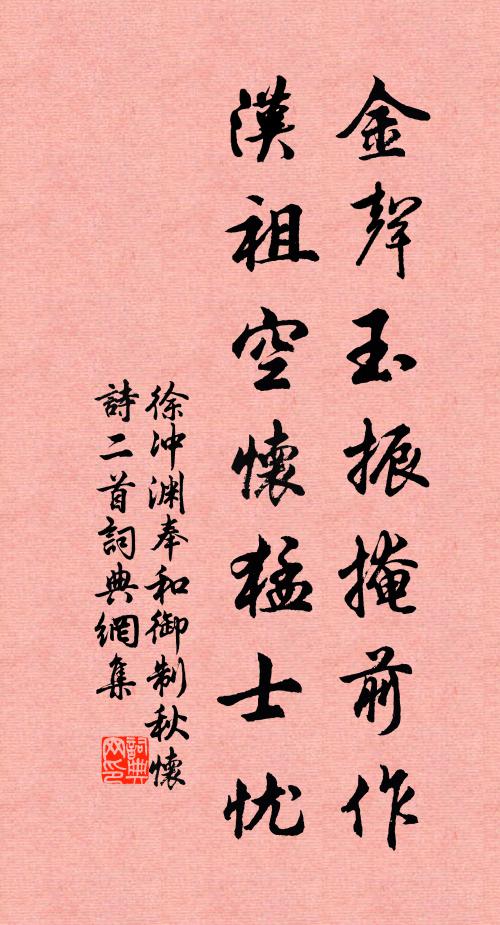 金聲玉振掩前作
漢祖空懷猛士忧
徐沖渊奉和御制秋懷
詩二首詞典網集
詞典
网印